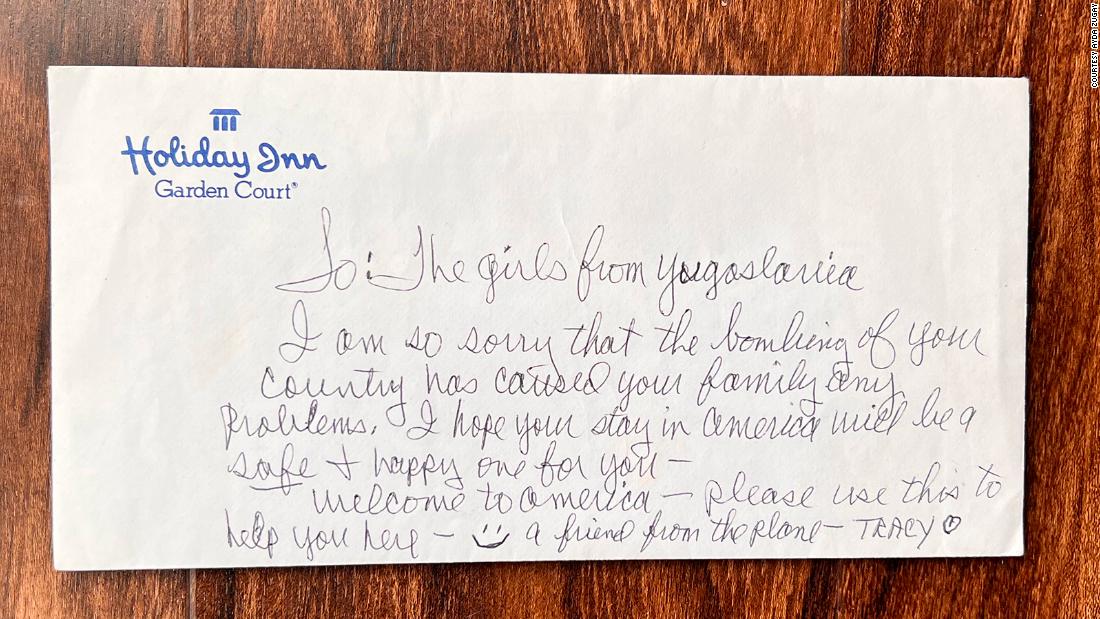 Holiday Inn
Garden Court®
To: The girls from Yugoslavia
I am so sorry that the bombing of your
country has caused your family any
problems. I hope your stay in America will be a
safe + happy one for you —
Welcome to America — please use this to
help you here — a friend from the plane — TRACY
COURTESY AYDA ZUGAY